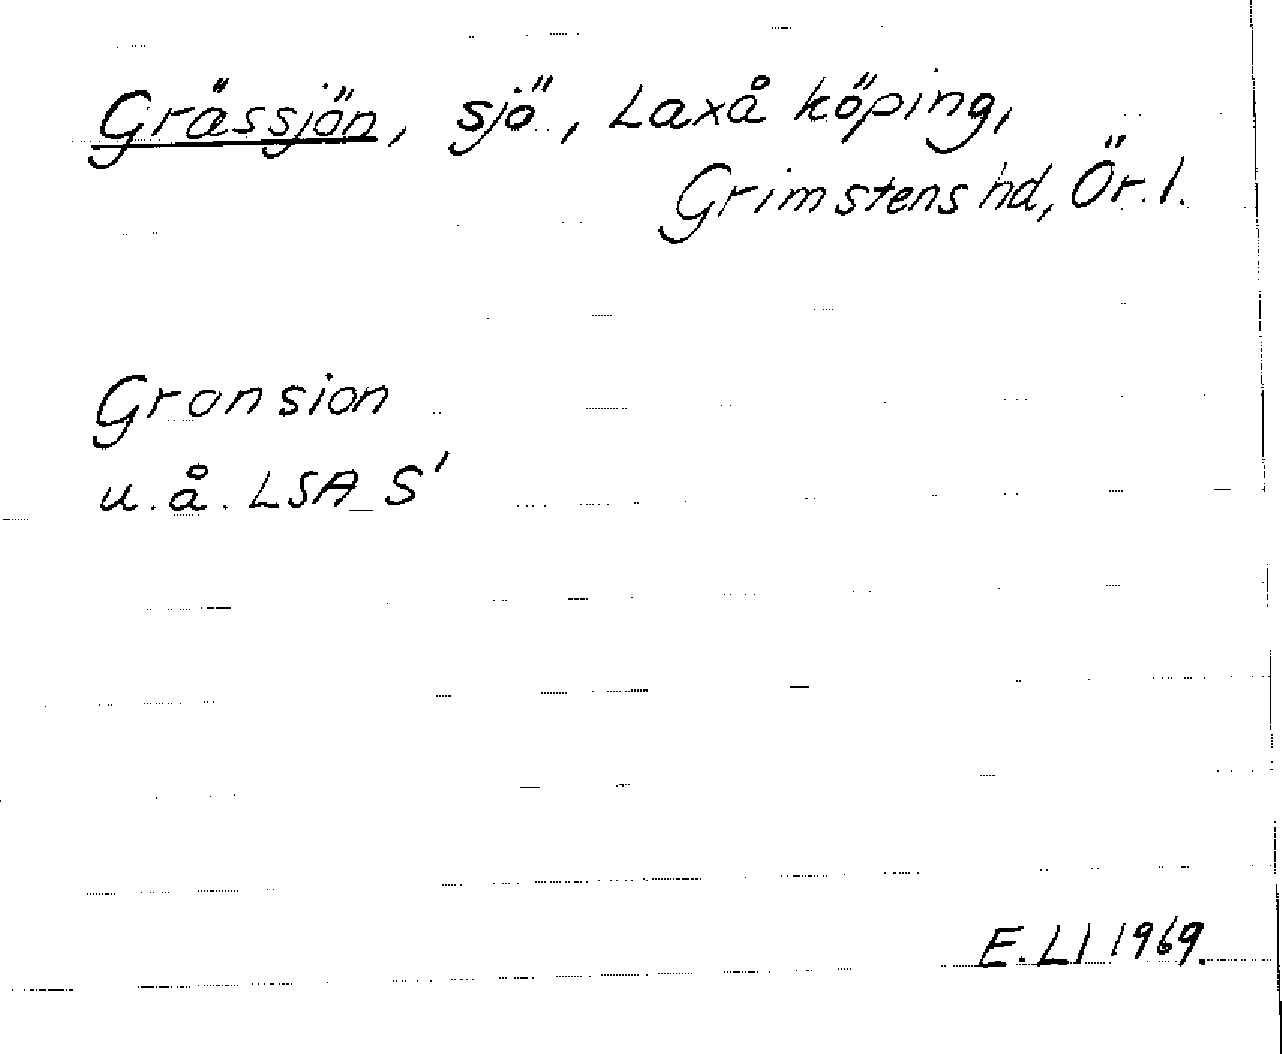 Grässjön, sjö, Laxå köping,
Grimstens hd, Ör. l.
Gronsion
u. å. LSA S'
E. Ll 1969.